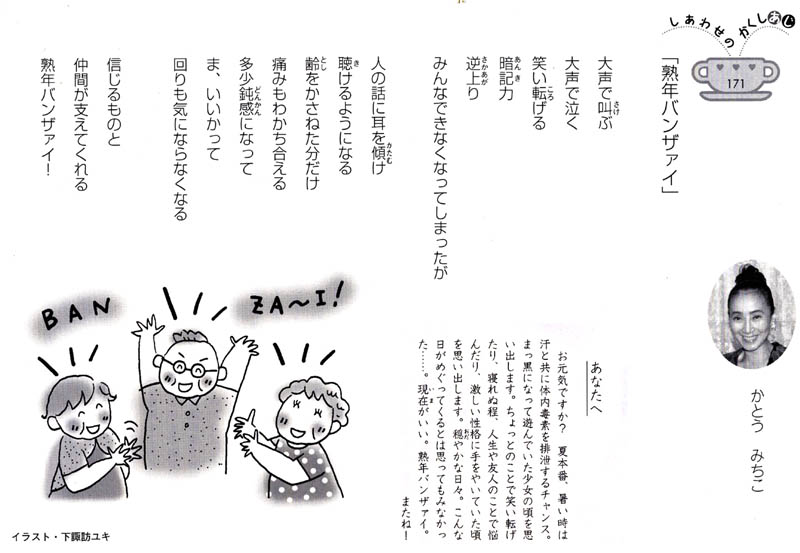 しあわせのかくしあじ
171
「熟年バンザァイ」
かとう みちこ
大声で叫ぶ
大声で泣く
笑い転げる
暗記力
逆上り
みんなできなくなってしまったが
人の話に耳を傾け
聴けるようになる
齢をかさねた分だけ
痛みもわかち合える
多少鈍感になって
ま、いいかって
回りも気にならなくなる
信じるものと
仲間が支えてくれる
熟年バンザァイ！
あなたへ
お元気ですか？ 夏本番、暑い時は
汗と共に体内毒素を排泄するチャンス。
まっ黒になって遊んでいた少女の頃を思
い出します。ちょっとのことで笑い転げ
たり、寝れぬ程、人生や友人のことで悩
んだり、激しい性格に手をやいていた頃
を思い出します。穏やかな日々。こんな
日がめぐってくるとは思ってもみなかっ
た……。現在がいい。熟年バンザァイ。
またね！
BAN
ZA〜I!
イラスト・下諏訪ユキ